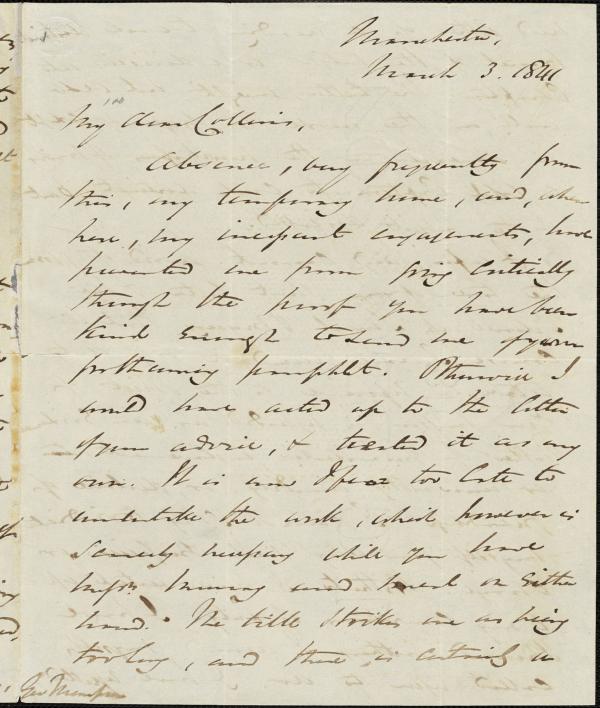 Manchester,
March 3. 1841
My dear Collins,
Absence, very frequently from
this, my temporary home, and, when
here, my incessant engagements, have
prevented me from going critically
through the proof you have been
kind enough to send me of your
forthcoming pamphlet. Otherwise I
would have acted up to the letter
of your advice, & treated it as my
own. It is now I fear too late to
undertake the work, which however is
scarcely necessary while you have
and on either
hand. The title strikes me as being
too long, and there is certainly a
Geo Thompson